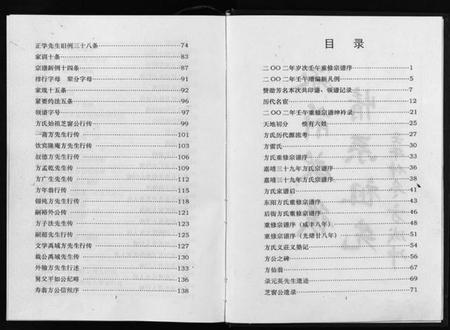 正学先生旧例三十八条 74
家训十条 83
宗谱新例十四条 87
排行字母 辈分字母 91
家规十五条 92
蒙要约法五条 96
领谱字号 97
方氏始祖芝窗公行传 99
蒲方先生行传 101
饮宾隆庵方先生行传 103
叔德方先生行传 105
方孟乾先生行传 107
方广生先生行传 112
方年翁行传 115
锦纯方先生行传 118
嗣裕外公传 121
方子法先生传 123
嗣超先生行传 125
文学禹城方先生行传 127
载公禹城先生传 130
外翰方先生行述 133
贤父平如公纪略 136
寿翁方公信恒序 138
目录
二〇〇二年岁次壬午重修宗谱序 1
二〇〇二年壬午增编新凡例 5
赞助芳名本次共印谱、领谱记录 7
历代名宦 12
二〇〇二年壬午重修宗谱绅衿录 21
天地初分 惟有六姓 25
方氏历代源流考 27
方雷氏 30
方氏重修宗谱序 33
嘉靖三十九年方氏宗谱序 36
嘉靖三十九年方氏宗谱序 38
方氏家谱后 41
东阳方氏重修宗谱序 43
后街方氏重修宗谱序 46
重修宗谱序（咸丰八年） 48
重修宗谱序（光绪廿八年） 51
方氏义庄义勋记 54
方公之碑 56
方仙翁 67
录元英先生遗迹 69
芝窗公遗录 71